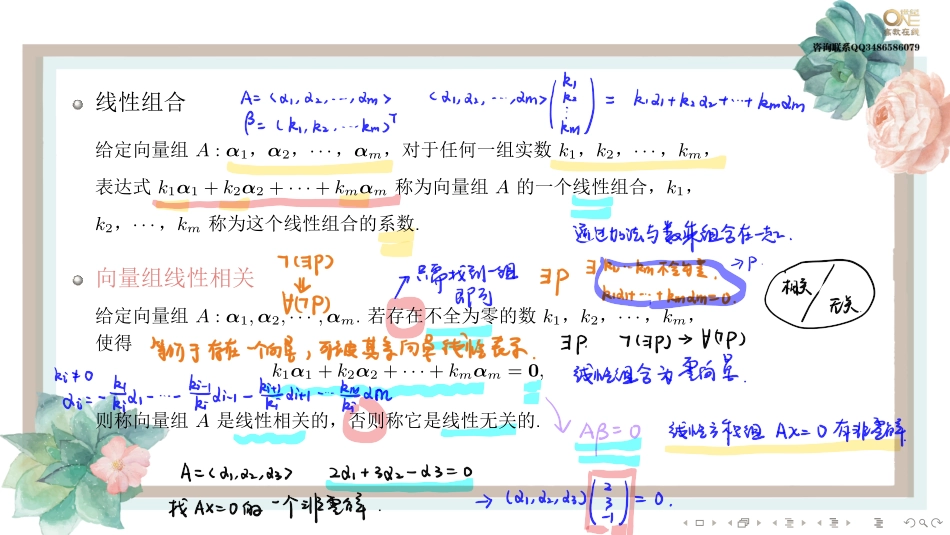 世纪
ONE
高教在线
咨询联系QQ3486586079
线性组合
A=(α1,α2,…,αm) (α1,α2,…,αm)(k1 k2 ⋮ km) = k1α1+k2α2+…+kmαm
β=(k1,k2,…km)ᵀ
给定向量组 A : α1, α2, ···, αm, 对于任何一组实数 k1, k2, ···, km,
表达式 k1α1 + k2α2 + ··· + kmαm 称为向量组 A 的一个线性组合, k1,
k2, ···, km 称为这个线性组合的系数.
通过加法与数乘组合在一起.
向量组线性相关
¬(∃P)
⇓
∀(¬P)
只需找到一组
即可
∃P
∃ k1…km不全为零, →P.
k1α1+…+kmαm=0.
相关/无关
给定向量组 A : α1, α2, ···, αm. 若存在不全为零的数 k1, k2, ···, km,
使得
等价于存在一个向量, 可被其余向量线性表示.
∃P ¬(∃P)→∀(¬P)
k1α1 + k2α2 + ··· + kmαm = 0,
线性组合为零向量.
ki≠0
αi=-k1/ki α1-…-ki-1/ki αi-1-ki+1/ki αi+1…-km/ki αm
则称向量组 A 是线性相关的, 否则称它是线性无关的.
Aβ=0
线性方程组 AX=0 有非零解
A=(α1,α2,α3) 2α1+3α2-α3=0
找AX=0的一个非零解.
→ (α1,α2,α3)(2 3 -1)=0.